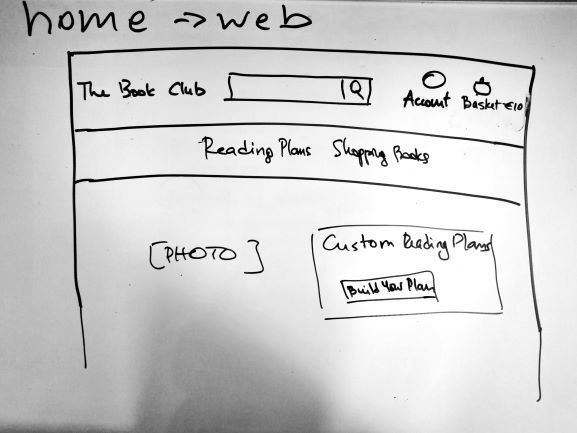 home → web
The Book Club
Account
Basket €10
Reading Plans Shopping Books
[PHOTO]
Custom Reading Plans
Build Your Plan